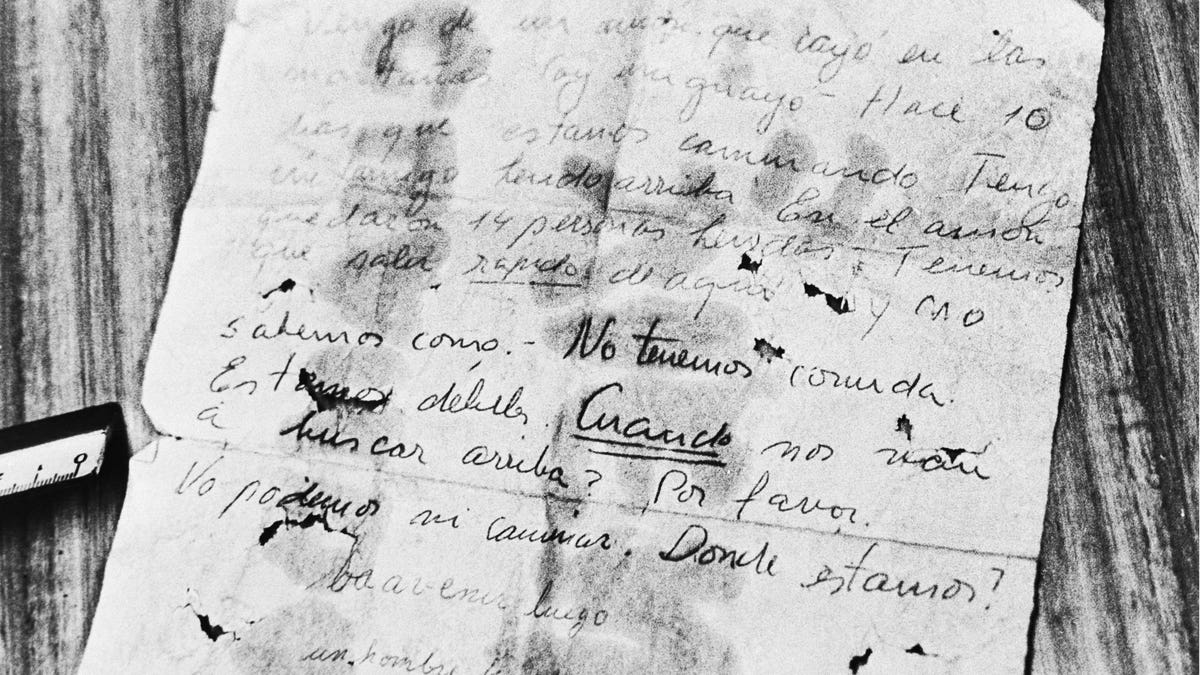 Vengo de un avión que cayó en las
montañas Soy uruguayo - Hace 10
días que estamos caminando Tengo
un amigo herido arriba En el avión
quedaron 14 personas heridas - Tenemos
que salir rápido de aquí y no
sabemos como. - No tenemos comida.
Estamos débiles. Cuando nos van
a buscar arriba? Por favor.
No podemos ni caminar. Donde estamos?
va a venir luego
un hombre